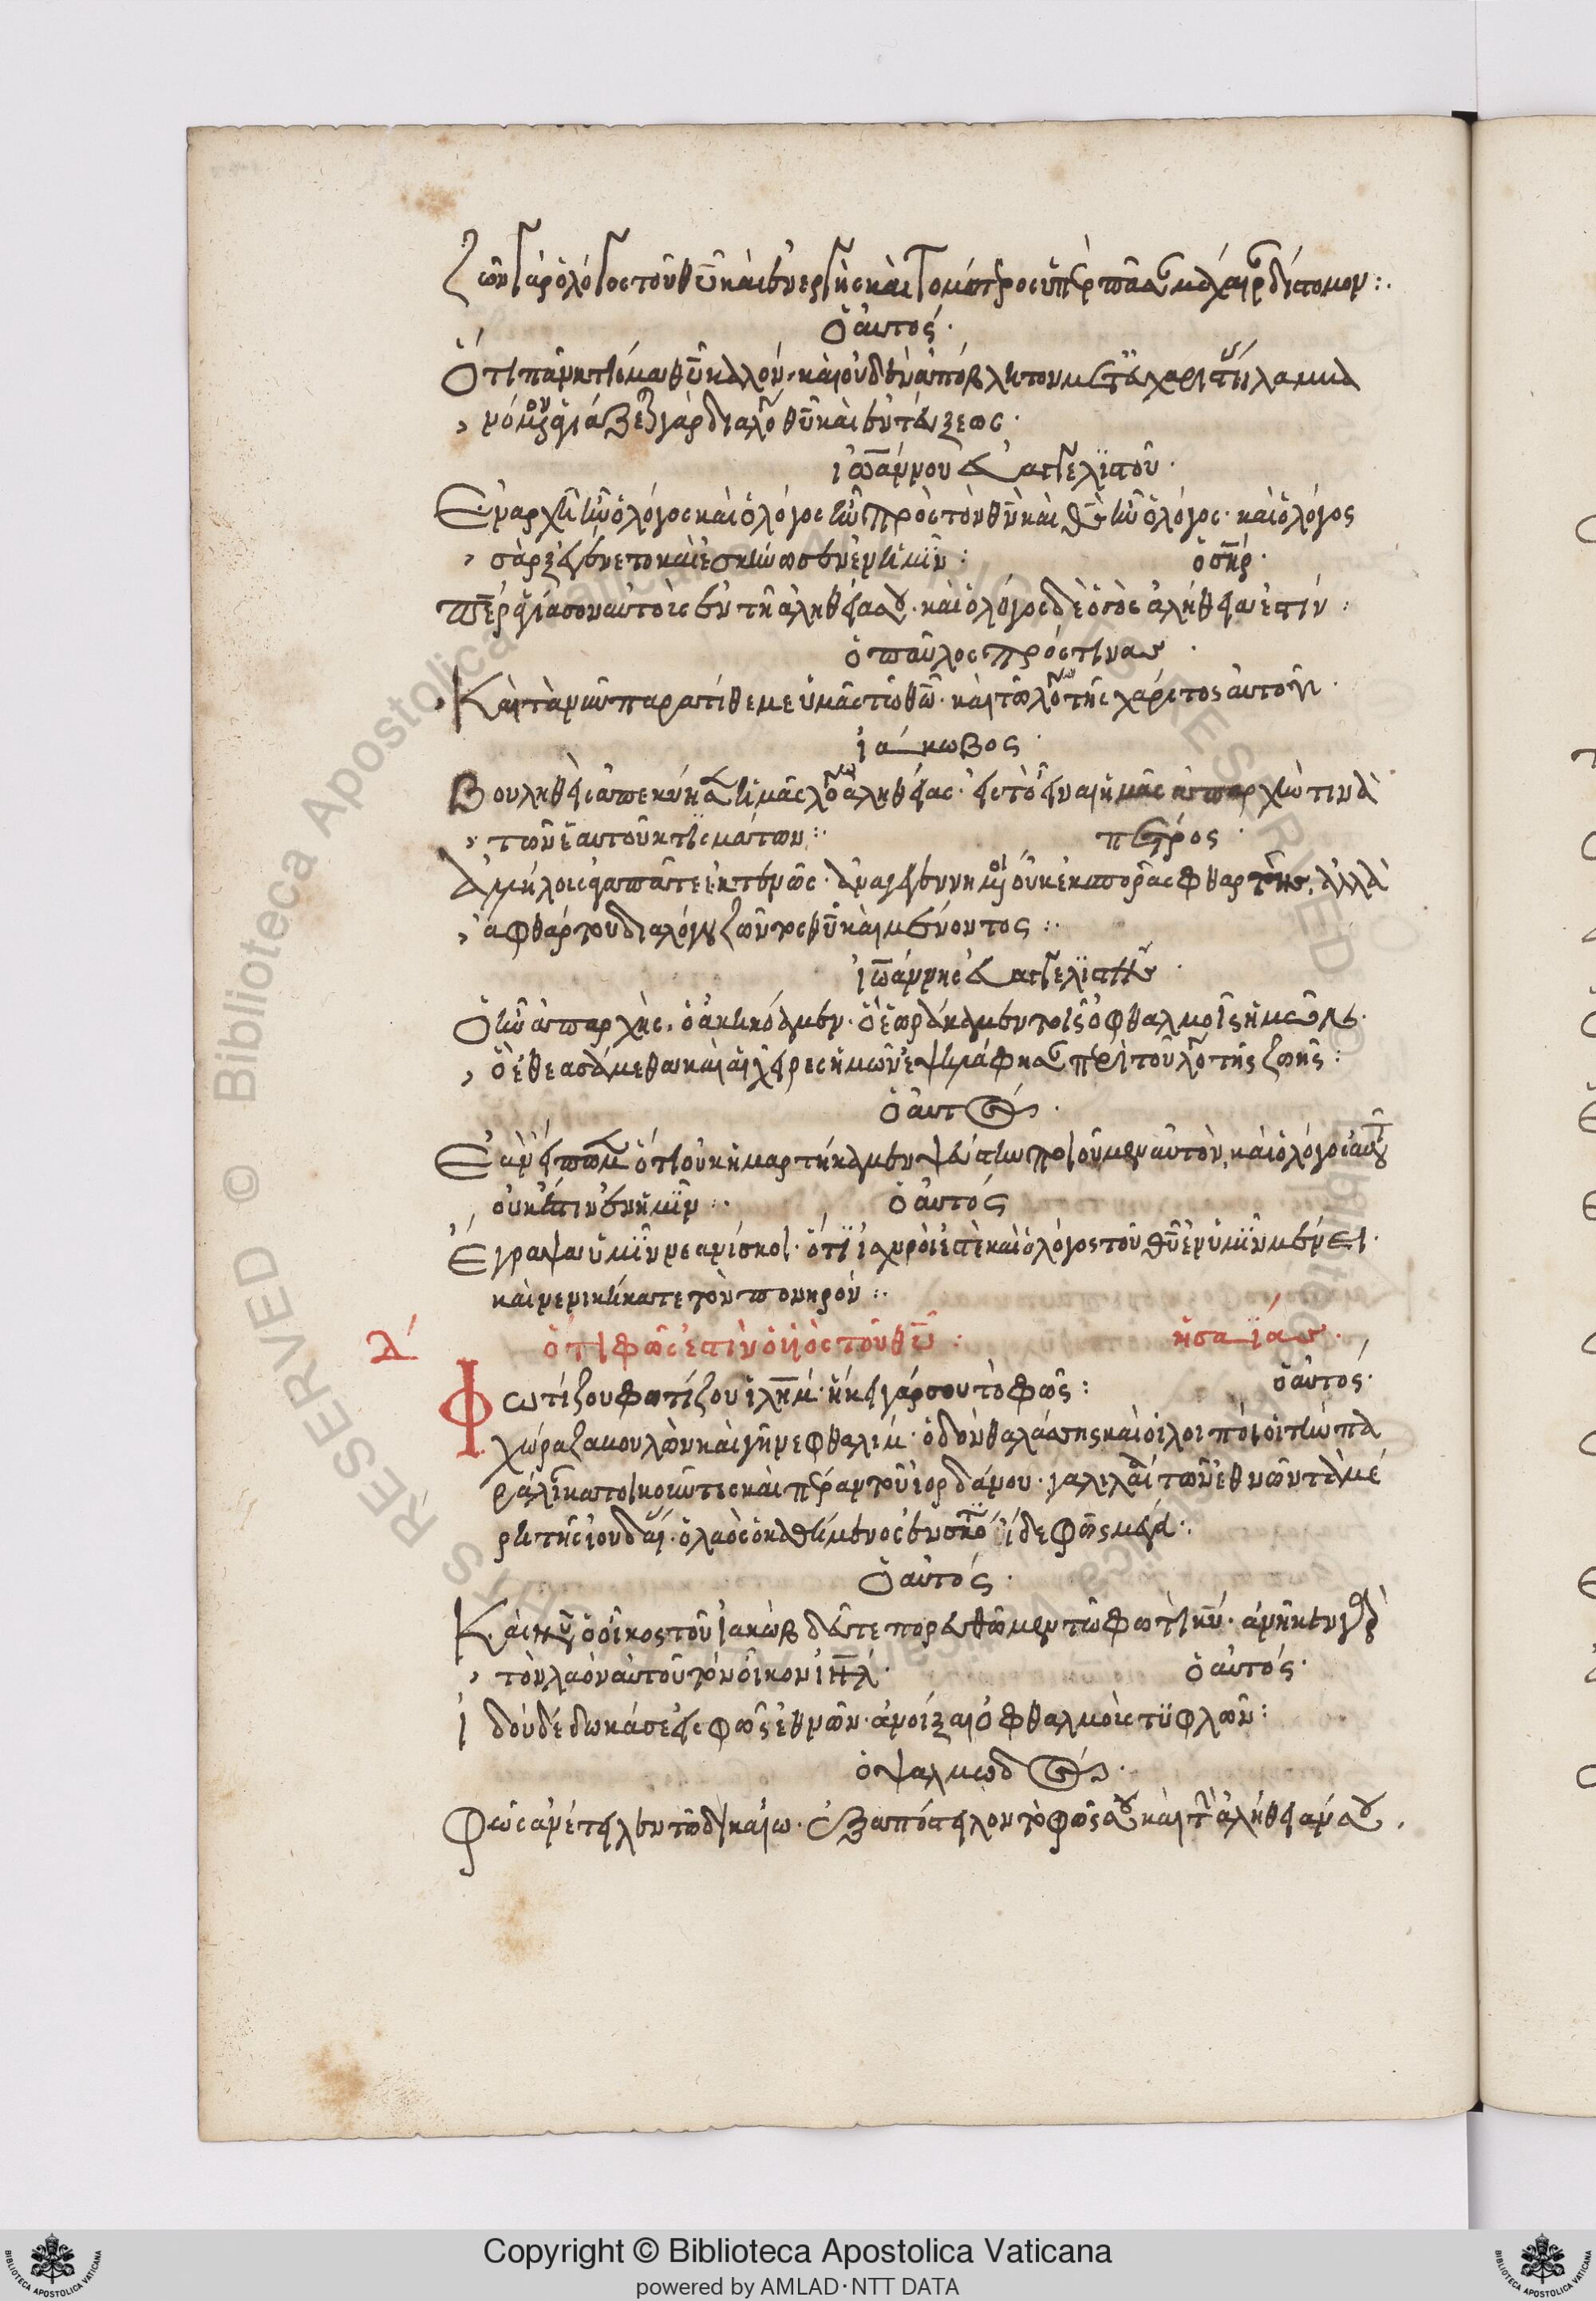 Ζῶν γὰρ ὁ λόγος τοῦ θῦ καὶ ἐνεργὴς καὶ τομώτερος ὑπὲρ πᾶσαν μάχαιραν δίστομον :.
Ὁ αὐτός.
Ὅτι πᾶν κτίσμα θῦ καλόν, καὶ οὐδὲν ἀπόβλητον μετὰ εὐχαριστίας λαμβα
νόμενον ἁγιάζεται γὰρ διὰ λόγου θῦ καὶ ἐντεύξεως.
ἰωάννου εὐαγγελιστοῦ.
Ἐν ἀρχῆ ἦν ὁ λόγος καὶ ὁ λόγος ἦν πρὸς τὸν θν καὶ θς ἦν ὁ λόγος. καὶ ὁ λόγος
σὰρξ ἐγένετο καὶ ἐσκήνωσεν ἐν ἡμῖν :
ὁ σηρ.
Περ ἁγίασον αὐτοὺς ἐν τῆ ἀληθεία σου. καὶ ὁ λόγος δὲ ὁ σὸς ἀλήθεια ἐστίν :
ὁ παῦλος πρός τινας.
Καὶ τὰ νῦν παρατίθεμε ὑμᾶς τῶ θῶ. καὶ τῶ λόγω τῆς χάριτος αὐτοῦ.
ἰάκωβος.
Βουληθεὶς ἀπεκύησεν ἡμᾶς λόγω ἀληθείας. εἰς τὸ εἶναι ἡμᾶς ἀπαρχὴν τινὰ
τῶν ἑαυτοῦ κτισμάτων :.
πέτρος.
Ἀλλήλους ἀγαπᾶτε ἐκτενῶς. ἀναγεγεννημένοι οὐκ ἐκ σπορᾶς φθαρτῆς, ἀλλὰ
ἀφθάρτου διὰ λόγου ζῶντος θῦ καὶ μένοντος :.
ἰωάννης εὐαγγελιστής.
Ὃ ἦν ἀπαρχῆς. ὃ ἀκηκόαμεν. ὃ ἑωράκαμεν τοῖς ὀφθαλμοῖς ἡμῶν.
ὃ ἐθεασάμεθα καὶ αἱ χεῖρες ἡμῶν ἐψηλάφησαν περὶ τοῦ λόγου τῆς ζωῆς :
ὁ αὐτός.
Ἐὰν εἴπωμεν ὅτι οὐκ ἡμαρτήκαμεν ψεύστην ποιοῦμεν αὐτὸν, καὶ ὁ λόγος αὐτοῦ
οὐκ ἔστιν ἐν ἡμῖν :.
ὁ αὐτός
Ἔγραψα ὑμῖν νεανίσκοι. ὅτι ἰσχυροί ἐστὲ καὶ ὁ λόγος τοῦ θῦ ἐν ὑμῖν μένει.
καὶ νενικήκατε τὸν πονηρόν :.
λ΄ ὅτι φῶς ἐστὶν ὁ υἱὸς τοῦ θῦ :
ἠσαΐας.
Φωτίζου φωτίζου ἱλημ. ἥκει γάρ σου τὸ φῶς :
ὁ αὐτός.
χώρα ζαβουλὼν καὶ γῆ νεφθαλίμ. ὁδὸν θαλάσσης καὶ οἱ λοιποὶ οἱ τὴν πα
ραλίαν κατοικοῦντες καὶ πέραν τοῦ ἰορδάνου. γαλιλαία τῶν ἐθνῶν τὰ μέ
ρη τῆς ἰουδαίας. ὁ λαὸς ὁ καθήμενος ἐν σκότει ἴδε φῶς μέγα :.
Ὁ αὐτός.
Καὶ νῦν ὁ οἶκος τοῦ ἰακὼβ δεῦτε πορευθῶμεν τῶ φωτὶ κυ. ἀνῆκεν γὰρ
τὸν λαὸν αὐτοῦ τὸν οἶκον ἰηλ.
ὁ αὐτός.
Ἰδοὺ δέδωκά σε εἰς φῶς ἐθνῶν. ἀνοῖξαι ὀφθαλμοὺς τυφλῶν :
ὁ ψαλμωδός.
Φῶς ἀνέτειλεν τῶ δικαίω. ἐξαπόστειλον τὸ φῶς σου καὶ τὴν ἀλήθειάν σου.
Copyright © Biblioteca Apostolica Vaticana
powered by AMLAD·NTT DATA